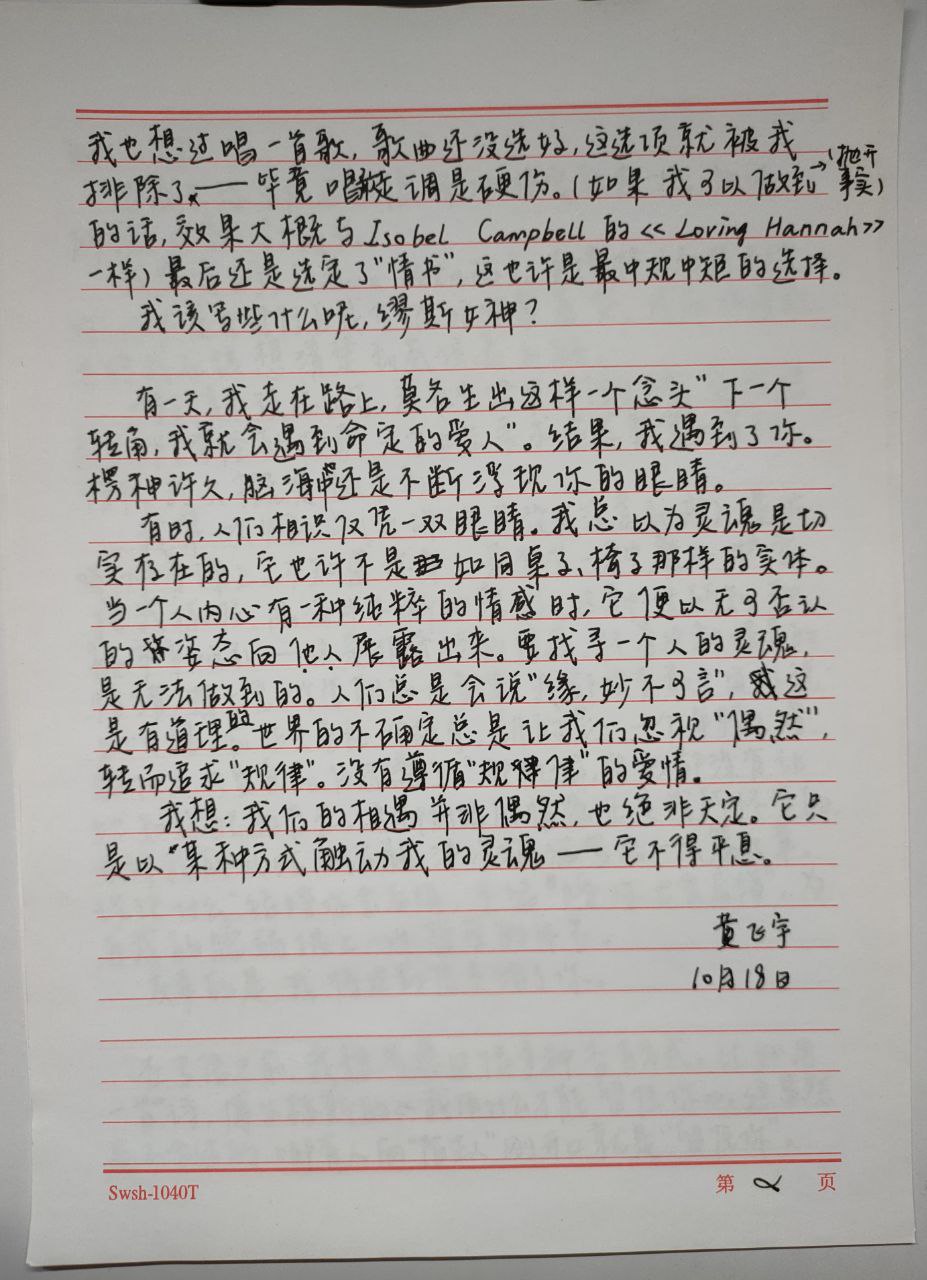 我也想过唱一首歌，歌曲还没选好，这选项就被我
排除了——毕竟唱歌走调是硬伤。（如果我可以做到→（抛开事实）
的话，效果大概与Isobel Campbell的<<Loving Hannah>>
一样）最后还是选定了"情书"，这也许是最中规中矩的选择。
我该写些什么呢，缪斯女神？
有一天，我走在路上，莫名生出这样一个念头"下一个
转角，我就会遇到命定的爱人"。结果，我遇到了你。
楞神许久，脑海中还是不断浮现你的眼睛。
有时，人们相识仅凭一双眼睛。我总以为灵魂是切
实存在的，它也许不是如同桌子、椅子那样的实体。
当一个人内心有一种纯粹的情感时，它便以无可否认
的姿态向他人展露出来。要找寻一个人的灵魂，
是无法做到的。人们总是会说"缘，妙不可言"，这
是有道理的。世界的不确定总是让我们忽视"偶然"，
转而追求"规律"。没有遵循"规律"的爱情。
我想：我们的相遇并非偶然，也绝非天定。它只
是以某种方式触动我的灵魂——它不得平息。
黄飞宇
10月18日
Swsh-1040T
第 2 页